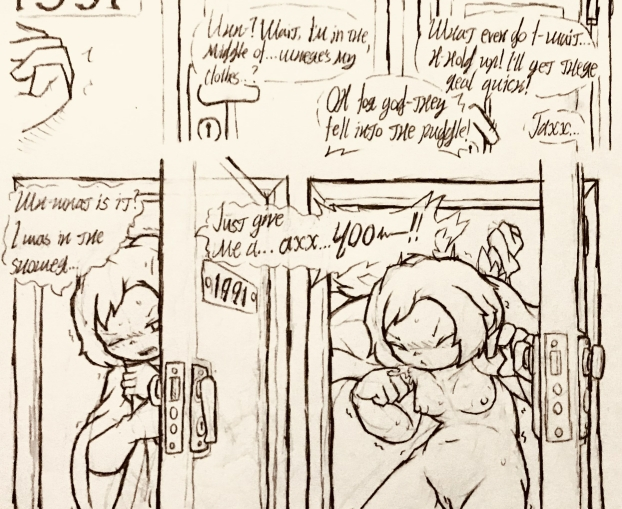 1991
Uhn? Wait, I'm in the
middle of...where's my
clothes..?
What even do I-wait...
H-Hold up! I'll get there
real quick!
Oh for god-They
fell into the puddle!
Jaxx...
Wh-what is it?
I was in the
shower...
Just give
me a... axx...
!!
1991